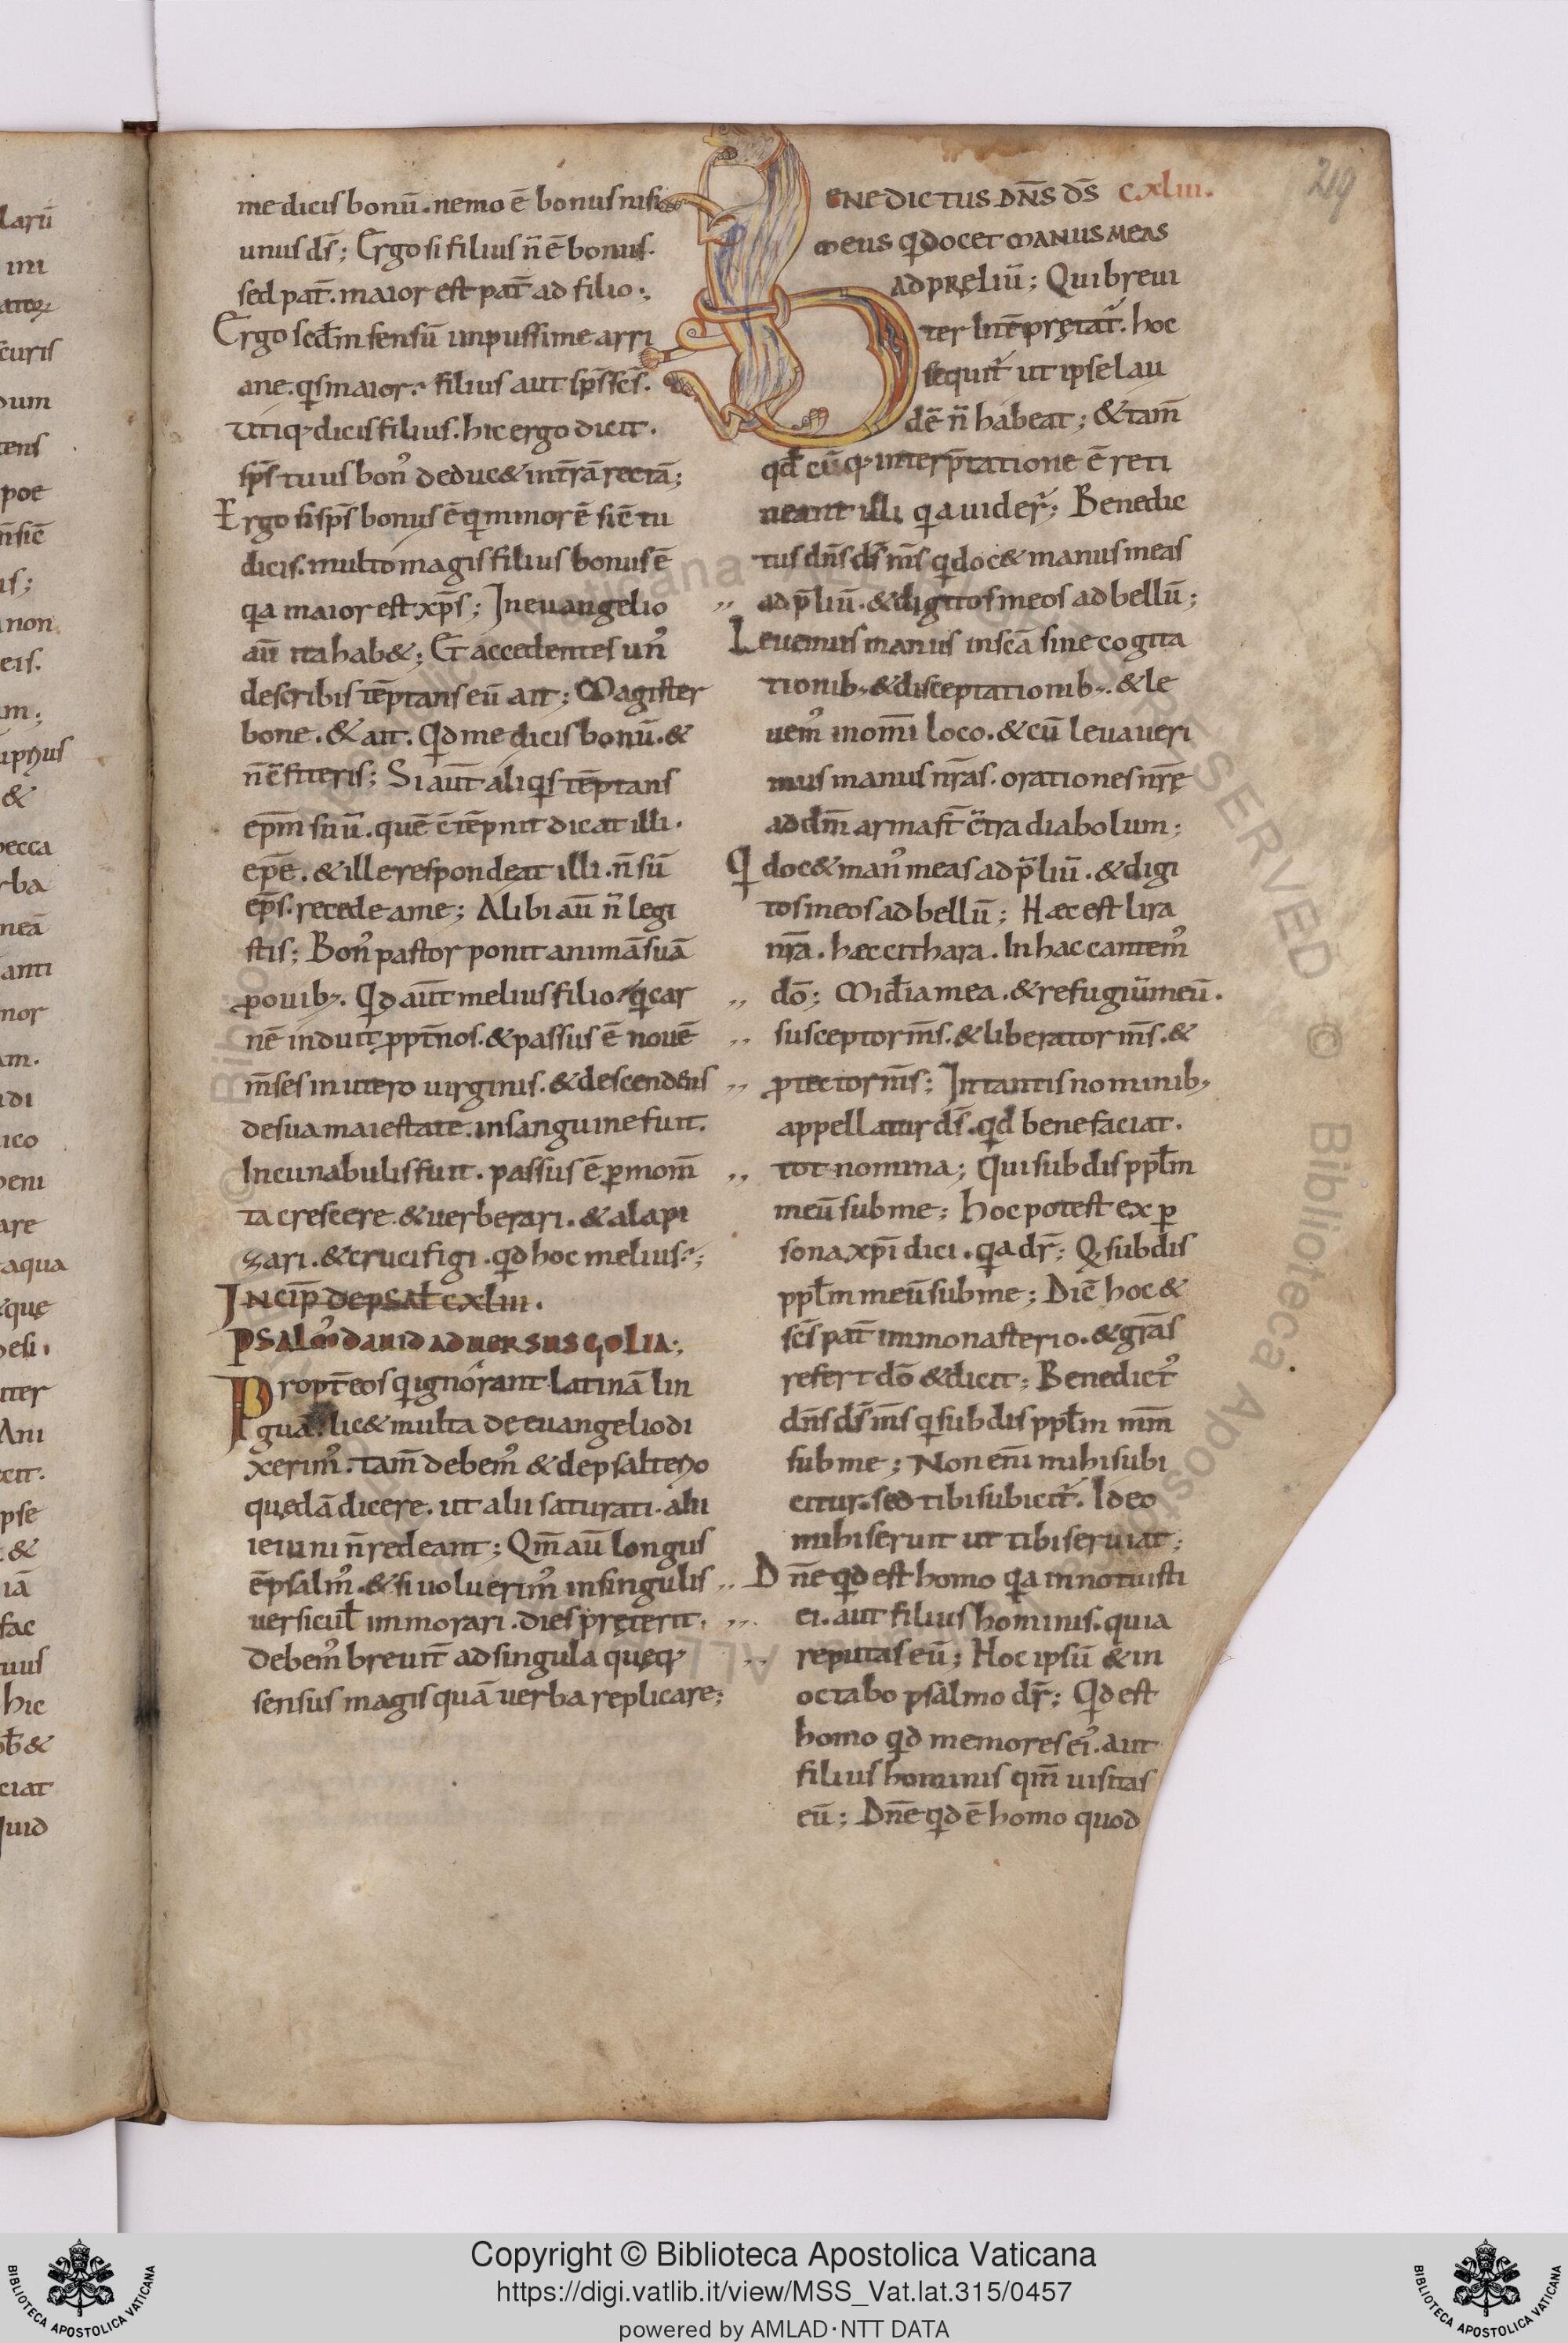 larū
ım
curis
oum
tens
poe
n̄siē
us;
non
eis.
ım;
&
pecca
rba
neā
anti
nor
am.
idi
ico
peni
are
aqua
que
esi.
iter
Ani
cit.
ipse
&
iā
fac
tuus
hic
ciat
quid
me dicis bonū. nemo ē bonus nisi
unus d̄s; Ergo si filius n̄ ē bonus.
sed pat̄. maior est pat̄ ad filio;
Ergo scd̄m sensū impussime arri
ane. qs maior? filius aut sp̄s sc̄s.
utiq; dicis filius. hic ergo dicit.
sp̄s tuus bon᾿ deduc& in t̄rā rectā;
Ergo si sp̄s bonus ē q minor ē sic tu
dicis. multo magis filius bonus ē
qa maior est xp̄s; In euangelio
aū ita hab&; Et accedentes un᾿
de scribis tēptans eū ait; Magister
bone. & ait. Qd me dicis bonū. &
n̄ c̄fiteris; Si aut̄ aliqis tēptans
ep̄m suū. quē c̄tēpnit dicat illi.
ep̄e. & ille respondeat illi. n̄ sū
ep̄s. recede a me; Alibi aū n̄ legi
stis; Bon᾿ pastor ponit animā suā
p ouib;. Qd aut̄ melius filio? q car
nē induit ppt̄ nos. & passus ē nouē
m̄ses in utero uirginis. & descendens
de sua maiestate. in sanguine fuit.
In cunabulis fuit. passus ē p mom̄
ta crescere. & uerberari. & alapi
zari. & crucifigi. qd hoc melius?;
INCIP̄ DE PSAL̄ CXLIII.
PSALM᾿ DAVID ADVERSUS GOLIA;
Propt̄ eos q ignorant latinā lin
guā. lic& multa de euangelio di
xerim᾿. tam̄ debem᾿ & de psalterio
quedā dicere. ut alii saturati. alii
ieiuni n̄ redeant; Qm̄ aū longus
ē psalm᾿. & si uoluerim᾿ in singulis
uersicul̄ immorari. dies pręterit.
debem᾿ breuit̄ ad singula queq;
sensus magis quā uerba replicare;
219
BENEDICTUS DN̄S D̄S CXLIII.
MEUS Q DOCET MANUS MEAS
AD PRĘLIŪ; Qui breui
ter int̄ēpretat᾿. hoc
sequit᾿ ut ipse lau
dē n̄ habeat; & tam̄
qd̄ cūq; interp̄tatione ē reti
neant illi qa uider᾿; Benedic
tus dn̄s d̄s m̄s q doc& manus meas
ad p̄liū. & digitos meos ad bellū;
Leuemus manus in sc̄a sine cogita
tionib; & disceptationib;. & le
uem᾿ in om̄i loco. & cū leuaueri
mus manus nr̄as. orationes nr̄ę
ad dm̄ armas̄t c̄tra diabolum;
Q doc& man᾿ meas ad p̄liū. & digi
tos meos ad bellū; Hæc est lira
nr̄a. hæc cithara. In hac cantem᾿
dō; Mid̄ia mea. & refugiū meū.
susceptor m̄s. & liberator m̄s. &
ptector m̄s; In tantis nominib;
appellatur d̄s. qd̄ benefaciat.
tot nomina; Qui subdis ppl̄m
meū sub me; Hoc potest ex p
sona xp̄i dici. qa dr̄; Q subdis
ppl̄m meū sub me; Dic̄ hoc &
sc̄s pat̄ immonasterio. & gr̄as
refert dō & dicit; Benedict᾿
dn̄s d̄s m̄s q subdis ppl̄m mm̄
sub me; Non eni mihi subi
citur. sed tibi subicit᾿. Ideo
mihi seruit ut tibi seruiat;
Dn̄e qd est homo qa innotuisti
ei. aut filius hominis. quia
reputas eū; Hoc ipsū & in
octabo psalmo dr̄; Qd est
homo qd memores ei᾿. aut
filius hominis qm̄ uisitas
eū; Dn̄e qd ē homo quod
Copyright © Biblioteca Apostolica Vaticana
https://digi.vatlib.it/view/MSS_Vat.lat.315/0457
powered by AMLAD·NTT DATA
BIBLIOTECA APOSTOLICA VATICANA
BIBLIOTECA APOSTOLICA VATICANA